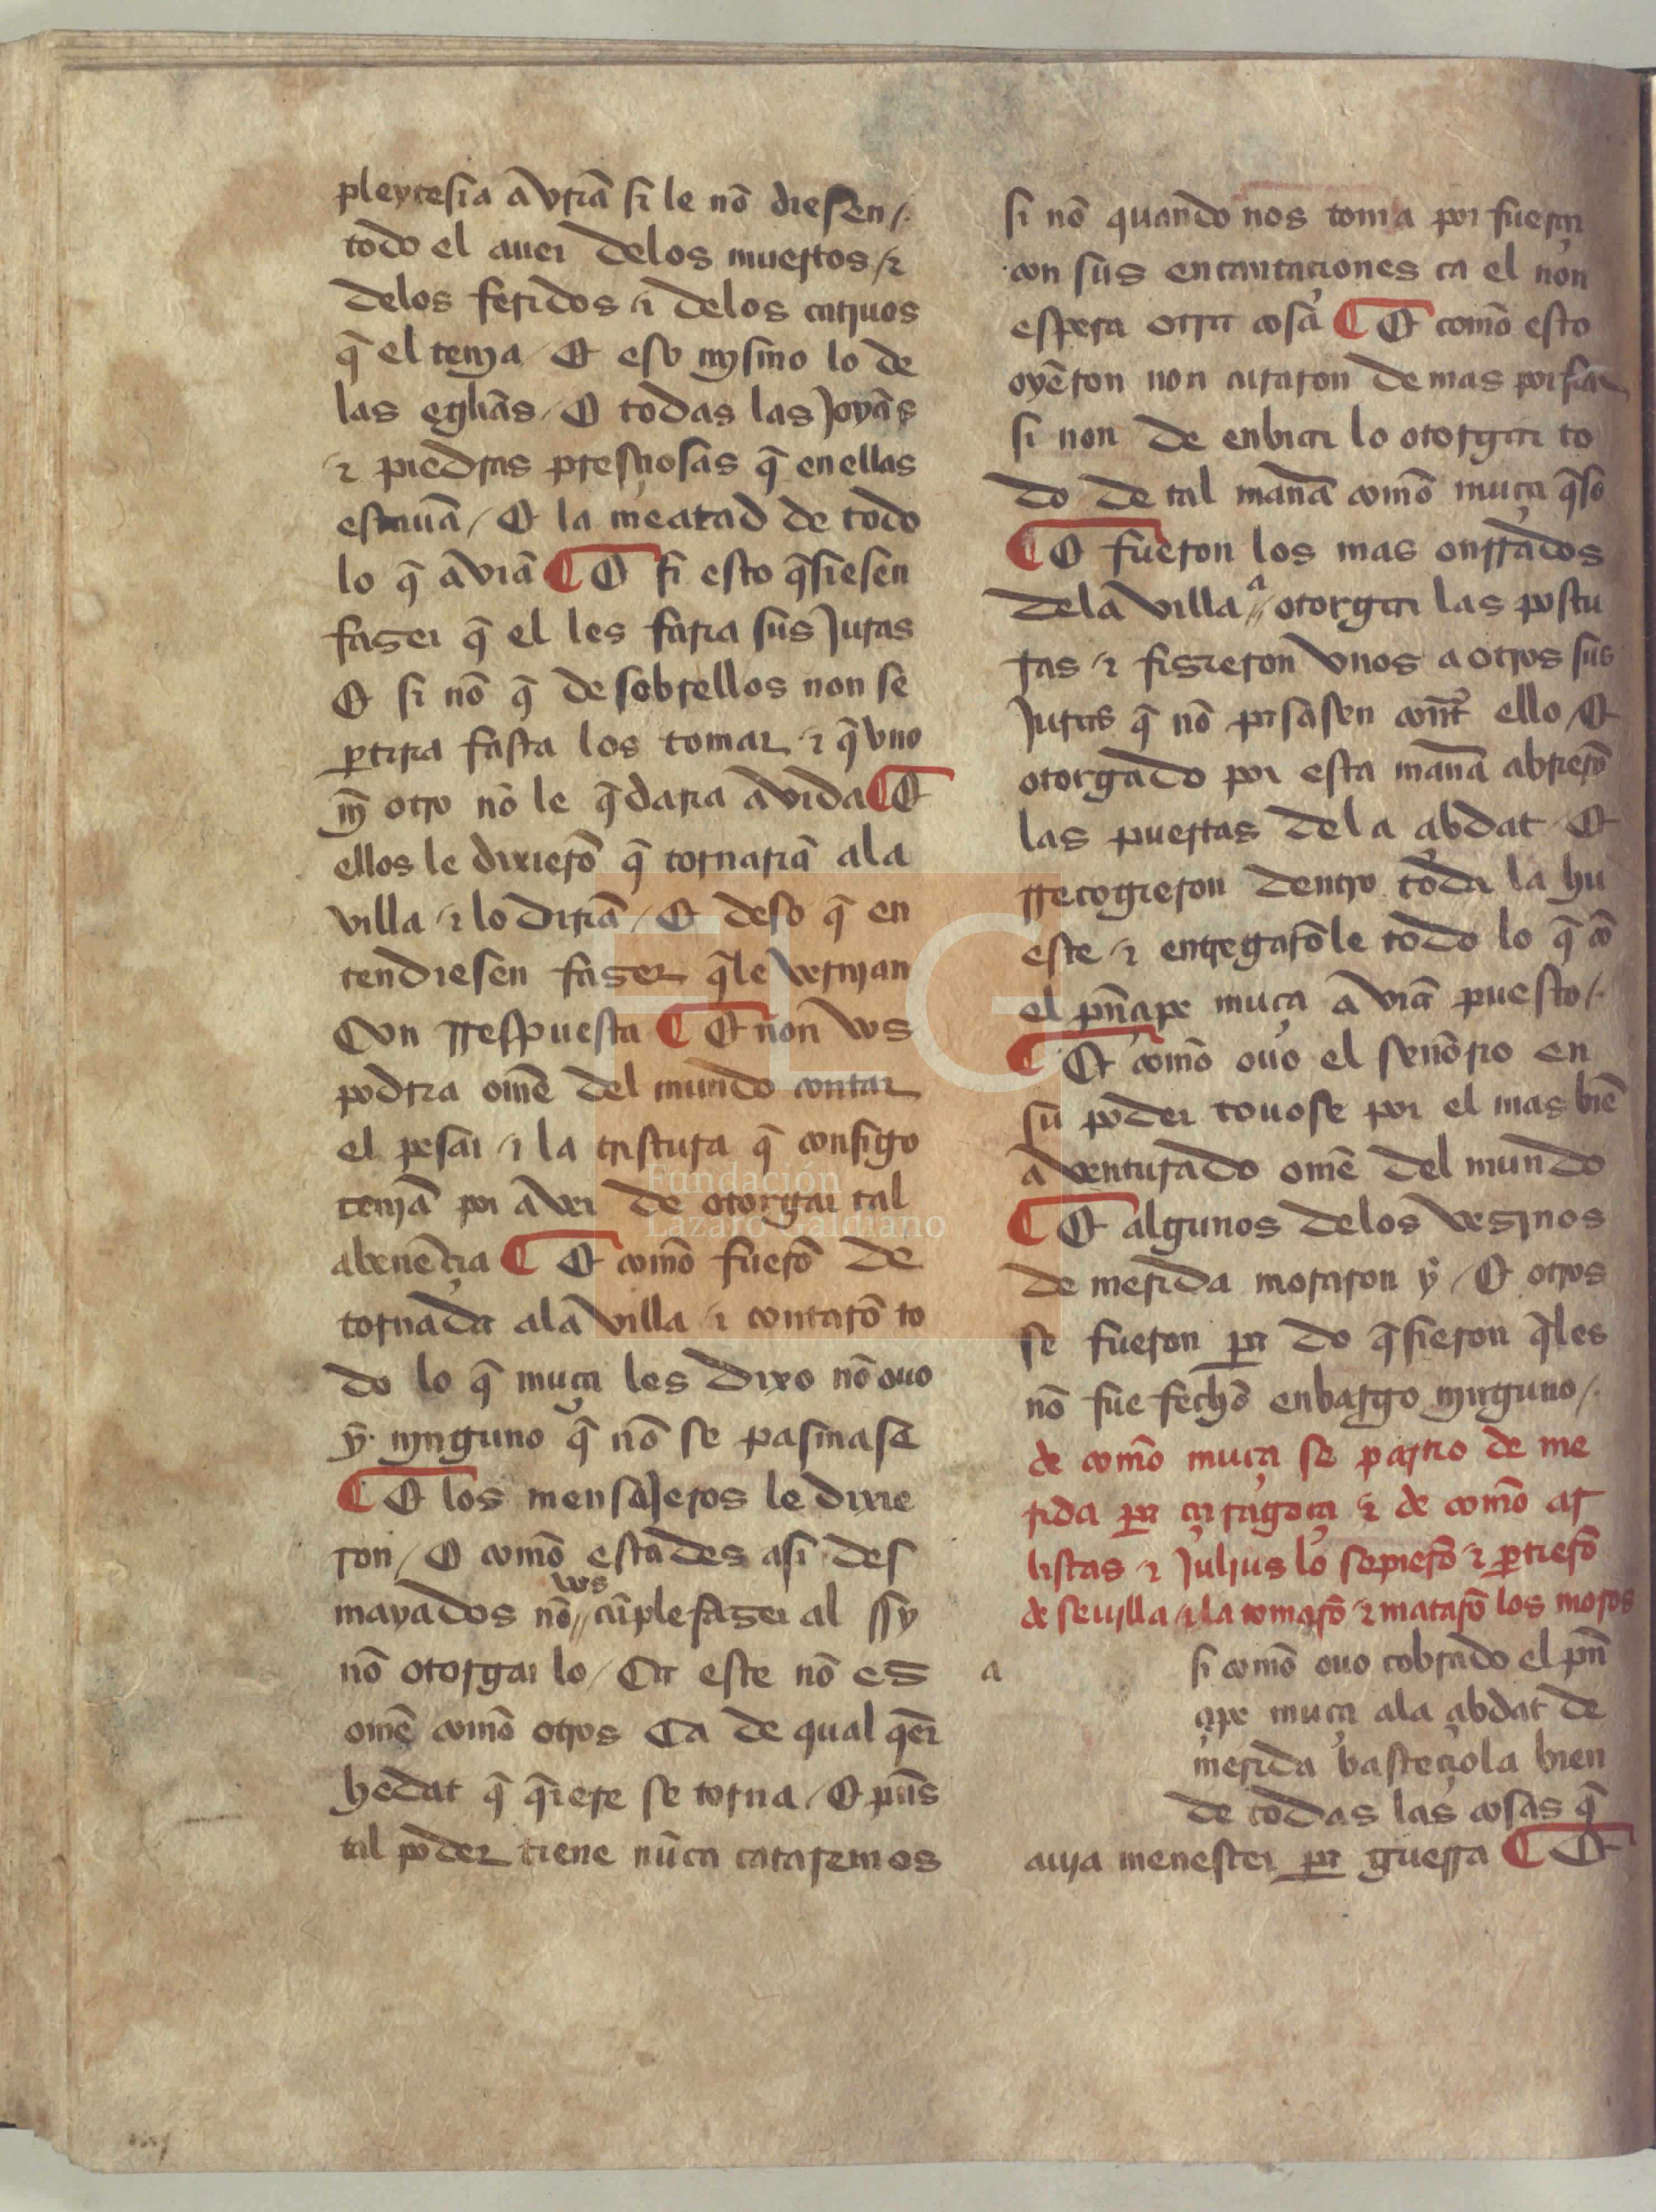 pleytesia aṽriã si le nõ diesen /.
todo el auer delos muertos / ⁊
delos feridos ⁊ delos catiuos
q̃ el tenja / Et eso mjsmo lo de
las egl̃ias / E todas las Joyas
⁊ piedras presçiosas q̃ en ellas
estauã / Et la meatad de todo
lo q̃ aviã ¶ E si esto q̃siesen
faser q̃ el les faria sus Juras
E si nõ q̃ de sobrellos non se
ꝑtiria fasta los tomar ⁊ q̃ vno
nj̃ otro nõ le q̃daria a vida ¶ Et
ellos le dixierõ q̃ tornariã ala
villa ⁊ lo diriã / Et deso q̃ en
tendiesen faser q̃le vernjan
Con rrespuesta ¶ Et non vos
podria omẽ del mundo contar
el pesar ⁊ la tristura q̃ consigo
tenjã por aver de otorgar tal
abenẽçia ¶ Et comõ fuerõ de
tornada ala villa ⁊ contarõ to
do lo q̃ muça les dixo nõ ouo
ỹ njnguno q̃ nõ se pasmase
¶ E los mensaJeros le dixie
ron / E comõ estades asi des
mayados nõ vos cũple faser al ssy
nõ otorgar lo / Ca este nõ es
omẽ comõ otros Ca de qual q̃er
hedat q̃ q̃iere se torna / E pũs
tal poder tiene nũca cataremos
si nõ quando nos toma por fuerça
con sus encantaciones ca el non
espera otra cosa ¶ Et comõ esto
oyẽron non curaron de mas porfiar
si non de enbiar lo otorgar to
do de tal manã comõ muça q̃so
¶ E fueron los mas onrrados
dela villa a otorgar las postu
ras ⁊ fisieron vnos a otros sus
Juras q̃ nõ pasasen cont̃ ello / Et
otorgado por esta manã abrierõ
las puertas dela çibdat / Et
rrecogieron dentro toda la hu
este ⁊ entregarõle todo lo q̃ cõ
el pñçipe muça aviã puesto /.
¶ Et comõ ouo el señorio en
su poder touose por el mas biẽ
aventurado omẽ del mundo
¶ Et algunos delos vesinos
de merida moraron ỹ / Et otros
se fueron ꝑa do q̃sieron q̃les
nõ fue fecho enbargo njnguno /.
de comõ muça se partio de me
rida ꝑa caragoça ⁊ de comõ ar
listas ⁊ Juljus lo sopierõ ⁊ ꝑtierõ
de seuilla ⁊ la tomarõ ⁊ matarõ los moros
a si comõ ouo cobrado el pñ
çipe muça ala çibdat de
merida basteçiola bien
de todas las cosas q̃
auja menester ꝑa guerra ¶ Et
FLG
Fundación
Lázaro Galdiano